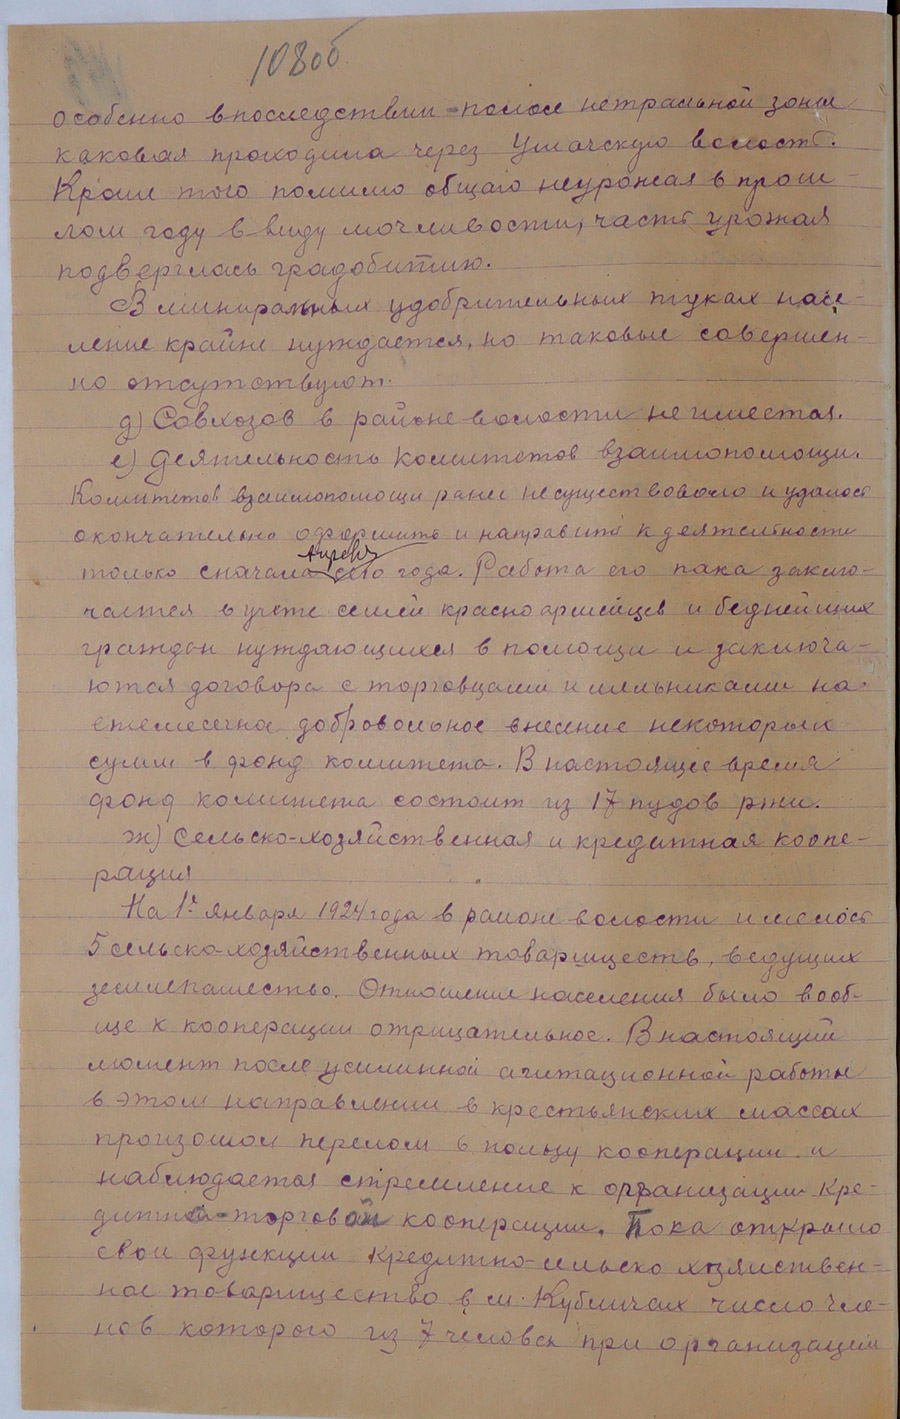 108об
особенно впоследствии - полоса нетральной зоны
каковая проходила через Ушачскую волость.
Кроме того помимо общаго неурожая в прош-
лом году в виду мочливости, часть урожая
подверглась градобитию.
В миниральных удобрительных туках насе-
ление крайне нуждается, но таковые совершен-
но отсутствуют.
д) Совхозов в районе волости не имеется.
е) Деятельность комитетов взаимопомощи.
Комитетов взаимопомощи ранее не существовало и удалось
окончательно оформить и направить к деятельности
апреля
только с начала сего года. Работа его пака заклю-
чается в учете семей красноармейцев и беднейших
граждан нуждающихся в помощи и заключа-
ются договора с торговцами и мельниками на
ежемесячное добровольное внесение некоторых
сумм в фонд комитета. В настоящее время
фонд комитета состоит из 17 пудов ржи.
ж) Сельско-хозяйственная и кредитная коопе-
рация
На 1е января 1924 года в районе волости имелось
5 сельско-хозяйственных товариществ, ведущих
землепашество. Отношения населения было вооб-
ще к кооперации отрицательное. В настоящий
момент после усиленной агитационной работы
в этом направлении в крестьянских массах
произошол перелом в пользу кооперации и
наблюдается стремление к организации кре-
дитно-торговой кооперации. Пока открыло
свои функции кредитно-сельско хозяйствен-
ное товарищество в м. Кубличах число чле-
нов которого из 7 человек при организации